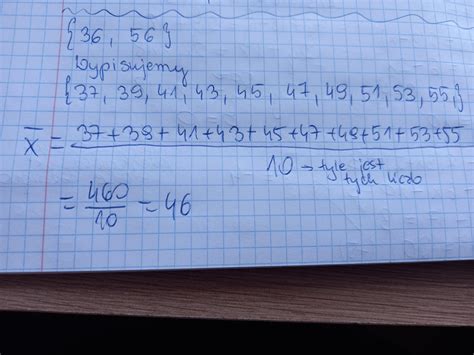 {36, 56}
Wypisujemy
{37, 39, 41, 43, 45, 47, 49, 51, 53, 55,}
x̄ = 37+39+41+43+45+47+49+51+53+55
10 → tyle jest
tych liczb
= 460/10 = 46